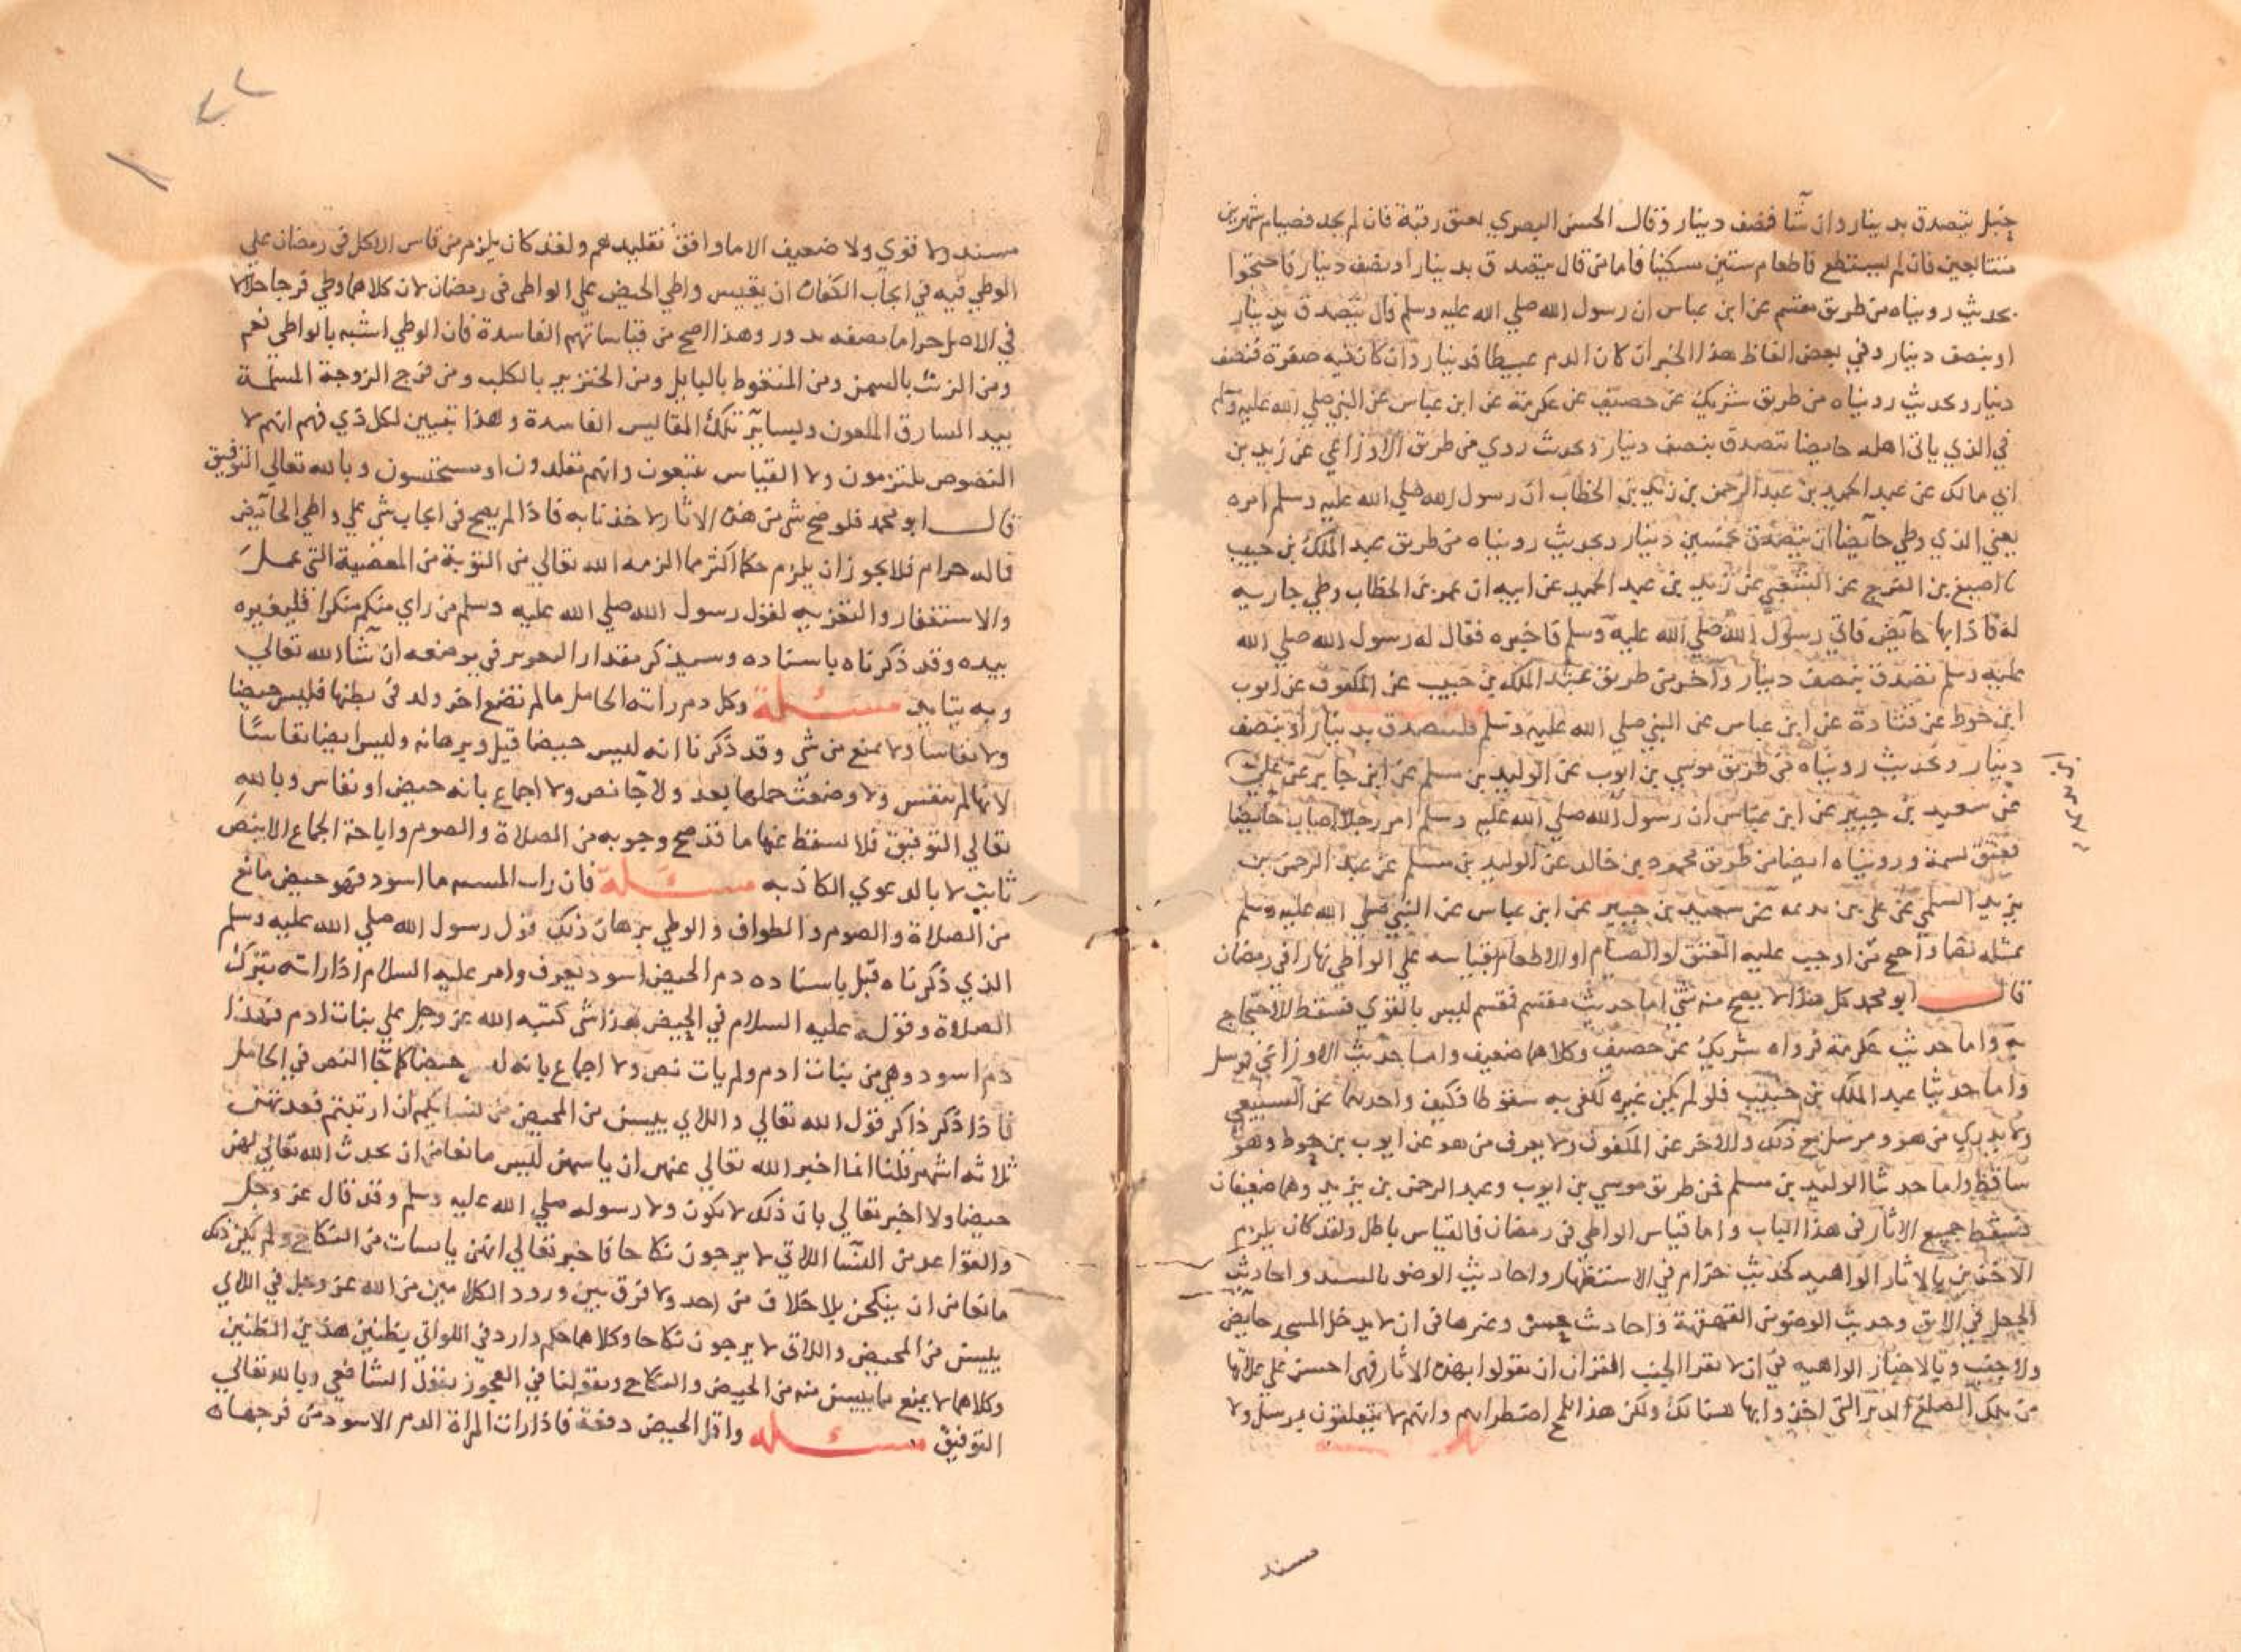 حنبل يتصدق بدينار وان شا فنصف دينار وقال الحسن البصري يعتق رقبة فان لم يجد فصيام شهرين
متتابعين فان لم يستطع فاطعام ستين مسكينا فاما من قال يتصدق بدينار او بنصف دينار فاحتجوا
بحديث رويناه من طريق مقسم عن ابن عباس ان رسول الله صلي الله عليه وسلم قال يتصدق بدينار
او بنصف دينار وفي بعض الفاظ هذا الخبر ان كان الدم عبيطا فدينار وان كان فيه صفرة فنصف
دينار وبحديث رويناه من طريق شريك عن خصيف عن عكرمة عن ابن عباس عن النبي صلي الله عليه وسلم
في الذي ياتي اهله حايضا يتصدق بنصف دينار وبحديث روي من طريق الاوزاعي عن زيد بن
ابي مالك عن عبد الحميد بن عبد الرحمن بن زيد بن الخطاب ان رسول الله صلي الله عليه وسلم امره
يعني الذي وطي حايضا ان يتصدق بخمسين دينار وبحديث رويناه من طريق عبد الملك بن حبيب
نا اصبغ بن الفرج عن السبيعي عن زيد بن عبد الحميد عن ابيه ان عمر بن الخطاب وطي جارية
له فاذا بها حايض فاتي رسول الله صلي الله عليه وسلم فاخبره فقال له رسول الله صلي الله
عليه وسلم تصدق بنصف دينار واخر من طريق عبد الملك بن حبيب عن المكفوف عن ايوب
ابن خوط عن قتادة عن ابن عباس عن النبي صلي الله عليه وسلم فليتصدق بدينار او بنصف
دينار وبحديث رويناه من طريق موسي بن ايوب عن الوليد بن مسلم عن ابن جابر عن علي
عن سعيد بن جبير عن ابن عباس ان رسول الله صلي الله عليه وسلم امر رجلا اصاب حايضا
بعتق نسمة ورويناه ايضا من طريق محمود بن خالد عن الوليد بن مسلم عن عبد الرحمن بن
يزيد السلمي عن علي بن بذيمة عن سعيد بن جبير عن ابن عباس عن النبي صلي الله عليه وسلم
بمثله نصا واحتج من اوجب عليه العتق او الصيام او الاطعام بقياسه علي الواطي نهارا في رمضان
قال ابو محمد كل هذا لا يصح منه شي اما حديث مقسم فمقسم ليس بالقوي فسقط الاحتجاج
به واما حديث عكرمة فرواه شريك عن خصيف وكلاهما ضعيف واما حديث الاوزاعي فمرسل
واما حديثا عبد الملك بن حبيب فلو لم يكن غيره لكفي به سقوطا فكيف واحدهما عن السبيعي
ولا يدري من هو ومرسل مع ذلك والاخر عن المكفوف ولا يعرف من هو عن ايوب بن خوط وهو
ساقط واما حديثا الوليد بن مسلم فمن طريق موسي بن ايوب وعبد الرحمن بن يزيد وهما ضعيفان
فسقط جميع الاثار في هذا الباب واما قياس الواطي في رمضان فالقياس باطل ولقد كان يلزم
الاخذين بالاثار الواهيه كحديث حزام في الاستظهار واحاديث الوضو بالنبيذ واحاديث
الجعل في الابق وحديث الوضو من القهقهة واحاديث وغيرها في ان لا يدخل المسجد حايض
ولا جنب وبالاخبار الواهيه في ان لا يقرا الجنب القران ان يقولوا بهذه الاثار فهي احسن علي علاتها
من تلك الدبر التي اخذوا بها هنالك ولكن هذا يلج اضطرابهم وانهم لا يتعلقون بمرسل ولا
مسند
مسند ولا قوي ولا ضعيف الا ما وافق تقليدهم ولقد كان يلزم من قاس الاكل في رمضان علي
الوطي فيه في ايجاب الكفارة ان يقيس واطي الحيض علي الواطي في رمضان لان كلاهما وطي فرجا حلالا
في الاصل حراما بصفه تدور وهذا اصح من قياساتهم الفاسدة فان الوطي اشبه بالواطي نعم
ومن الزيت بالسمن ومن المتغوط بالبايل ومن الخنزير بالكلب ومن فرج الزوجة المسلمة
بيد السارق الملعون وبسائر تلك المقاييس الفاسدة وهذا يتبين لكل ذي فهم انهم لا
النصوص يلتزمون ولا القياس يتبعون وانهم مقلدون او مستحسنون وبالله تعالي التوفيق
قال ابو محمد فلو صح شي من هذه الاثار لاخذنا به فاذا لم يصح في ايجاب شي علي واطي الحايض
فاله حرام فلا يجوز ان يلزم حكما اكثر مما الزمه الله تعالي من التوبة من المعصية التي عمل
والاستغفار والتعزير لقول رسول الله صلي الله عليه وسلم من راي منكم منكرا فليغيره
بيده وقد ذكرناه باسناده وسيذكر مقدار التعزير في موضعه ان شا الله تعالي
وبه نتايد مسئلة وكل دم راته الحامل ما لم تضع اخر ولد في بطنها فليس حيضا
ولا نفاسا ولا يمنع من شي وقد ذكرنا انه ليس حيضا قبل وبرهانه وليس ايضا نفاسا
لانها لم تنفس ولا وضعت حملها بعد ولا جا نص ولا اجماع بانه حيض او نفاس وبالله
تعالي التوفيق فلا يسقط عنها ما قد صح وجوبه من الصلاة والصوم واباحة الجماع الا بنص
ثابت لا بالدعوي الكاذبه مسئلة فان رات المسنه دما اسود فهو حيض مانع
من الصلاة والصوم والطواف والوطي برهان ذلك قول رسول الله صلي الله عليه وسلم
الذي ذكرناه قبل باسناده دم الحيض اسود يعرف وامر عليه السلام اذا راته بترك
الصلاة وقوله عليه السلام في الحيض هذا شي كتبه الله عز وجل علي بنات ادم فهذا
دم اسود وهي من بنات ادم ولم يات نص ولا اجماع بانه ليس حيضا كما جا النص في الحامل
فاذا ذكر ذاكر قول الله تعالي واللاي ييسن من المحيض من نسايكم ان ارتبتم فعدتهن
ثلاثه اشهر قلنا انما اخبر الله تعالي عنهن ان ياسهن ليس مانعا من ان يحدث الله تعالي لهن
حيضا ولا اخبر تعالي بان ذلك لا يكون ولا رسوله صلي الله عليه وسلم وقد قال عز وجل
والقواعد من النسا اللاتي لا يرجون نكاحا فاخبر تعالي انهن يايسات من النكاح ولم يكن ذلك
مانعا من ان ينكحن بلا خلاف من احد ولا فرق بين ورود الكلامين من الله عز وجل في اللاي
ييسن من المحيض واللاتي لا يرجون نكاحا وكلاهما حكم وارد في اللواتي يظنن هذين الظنين
وكلاهما لا يمنع مما ييسن منه من المحيض والنكاح وبقولنا في العجوز يقول الشافعي وبالله تعالي
التوفيق مسئلة واقل الحيض دفعة فاذا رات المراة الدم الاسود من فرجها